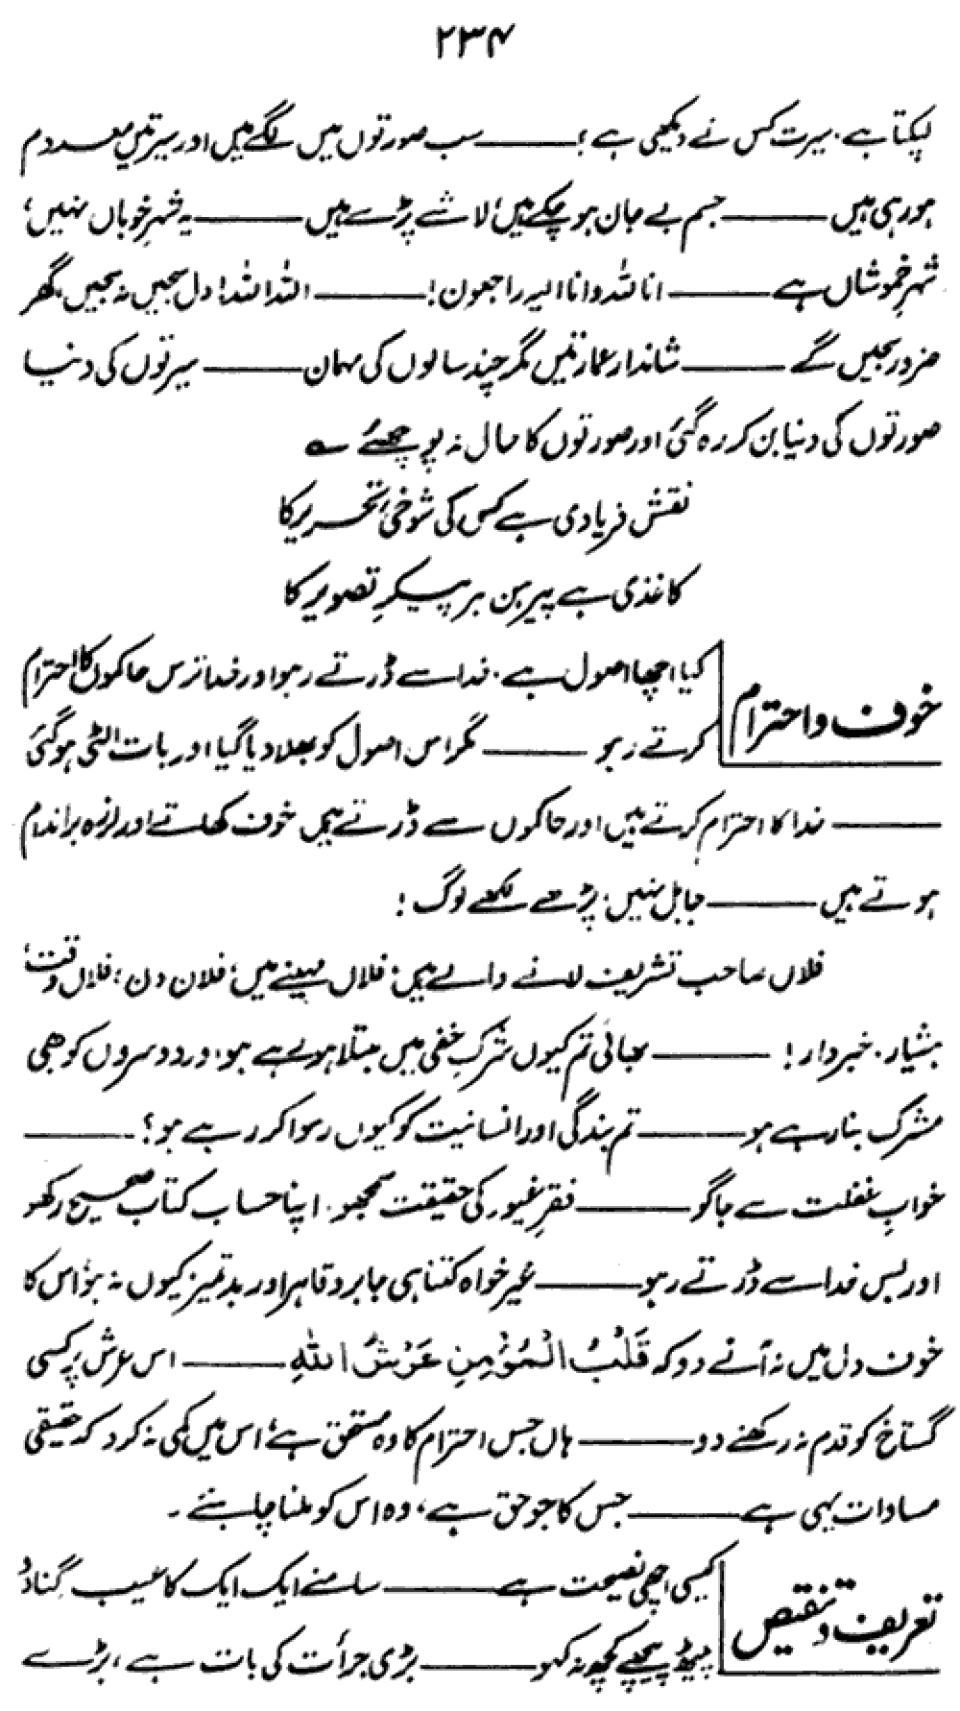 ۲۳۴
لپکتا ہے۔ سیرت کس نے دیکھی ہے؟ ——— سب صورتوں میں لگے ہیں اور سیرتیں معدوم
ہو رہی ہیں ——— جسم بے جان ہو چکے ہیں، لاشے پڑے ہیں ——— یہ شہرِ خوباں نہیں،
شہرِ خموشاں ہے ——— انا للہ وانا الیہ راجعون! ——— اللہ اللہ! دل سجیں نہ سجیں، گھر
ضرور سجیں گے ——— شاندار عمارتیں مگر چند سالوں کی مہمان ——— سیرتوں کی دنیا
صورتوں کی دنیا بن کر رہ گئی اور صورتوں کا حال نہ پوچھئے ؎
نقش فریادی ہے کس کی شوخیٔ تحریر کا
کاغذی ہے پیرہن ہر پیکرِ تصویر کا
خوف و احترام
کیا اچھا اصول ہے۔ خدا سے ڈرتے رہو اور خدا ترس حاکموں کا احترام
کرتے رہو ——— مگر اس اصول کو بھلا دیا گیا اور بات الٹی ہو گئی
——— خدا کا احترام کرتے ہیں اور حاکموں سے ڈرتے ہیں، خوف کھاتے اور لرزہ براندام
ہوتے ہیں ——— جاہل نہیں، پڑھے لکھے لوگ!
فلاں صاحب تشریف لانے والے ہیں؛ فلاں مہینے میں؛ فلاں دن؛ فلاں وقت؛
ہشیار۔ خبردار! ——— بھائی تم کیوں شرکِ خفی میں مبتلا ہو رہے ہو، اور دوسروں کو بھی
مشرک بنا رہے ہو ——— تم بندگی اور انسانیت کو کیوں رسوا کر رہے ہو؟ ———
خوابِ غفلت سے جاگو ——— فقرِ غیور کی حقیقت سمجھو۔ اپنا حساب کتاب صحیح رکھو
اور بس خدا سے ڈرتے رہو ——— غیر خواہ کتنا ہی جابر و قاہر اور بدتمیز کیوں نہ ہو، اس کا
خوف دل میں نہ آنے دو کہ قَلْبُ الْمُؤْمِنِ عَرْشُ اللهِ ——— اس عرش پر کسی
گستاخ کو قدم نہ رکھنے دو ——— ہاں جس احترام کا وہ مستحق ہے، اس میں کمی نہ کرو کہ حقیقی
مساوات یہی ہے ——— جس کا جو حق ہے، وہ اس کو ملنا چاہئے۔
تعریف و تنقیص
کیسی اچھی نصیحت ہے ——— سامنے ایک ایک کا عیب گنا دو
پیٹھ پیچھے کچھ نہ کہو ——— بڑی جرأت کی بات ہے، بڑے